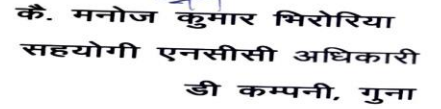 कै. मनोज कुमार भिरोरिया
सहयोगी एनसीसी अधिकारी
डी कम्पनी, गुना